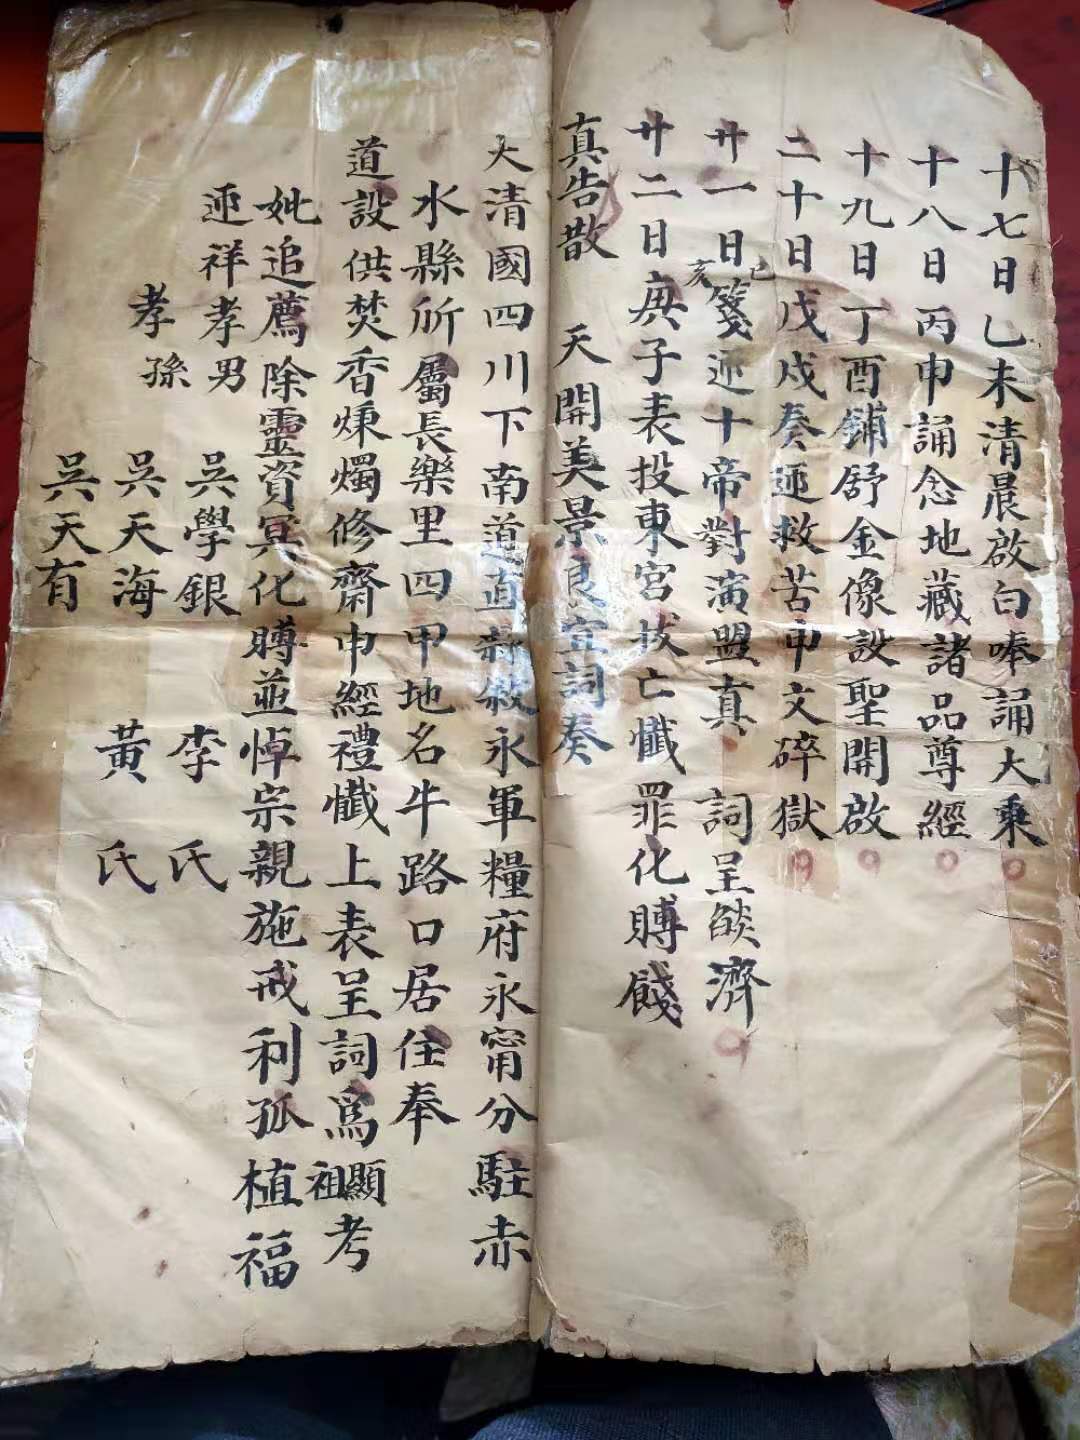 十七日乙未清晨啟白唪誦大乘
十八日丙申誦念地藏諸品尊經
十九日丁酉鋪舒金像設聖開啟
二十日戊戌奏迎救苦申文碎獄
廿一日己亥箋迎十帝對演盟真 詞呈燄濟
廿二日庚子表投東宮拔亡懺罪化賻餞
真告散 天開美景良宜詞奏
大清國四川下南道直新敘永軍糧府永甯分駐赤
水縣所屬長樂里四甲地名牛路口居住奉
道設供焚香煉燭修齋申經禮懺上表呈詞為顯祖考
妣追薦除靈資冥化賻並悼宗親施戒利孤植福
迎祥孝男 吳學銀 李氏
孝孫 吳天海 黃氏
吳天有